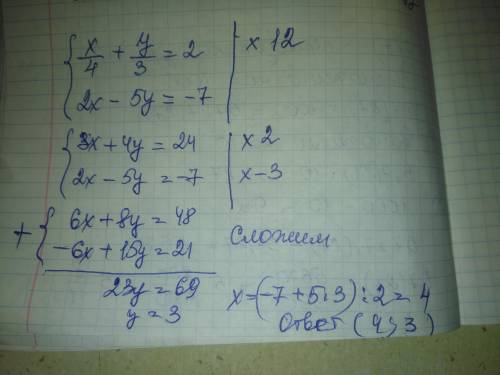 x/4 + y/3 = 2 | x 12
2x - 5y = -7
3x + 4y = 24 | x 2
2x - 5y = -7 | x - 3
+ 6x + 8y = 48
-6x + 15y = 21 Сложим
23y = 69
y = 3
x = (-7 + 5·3) : 2 = 4
Ответ (4; 3)